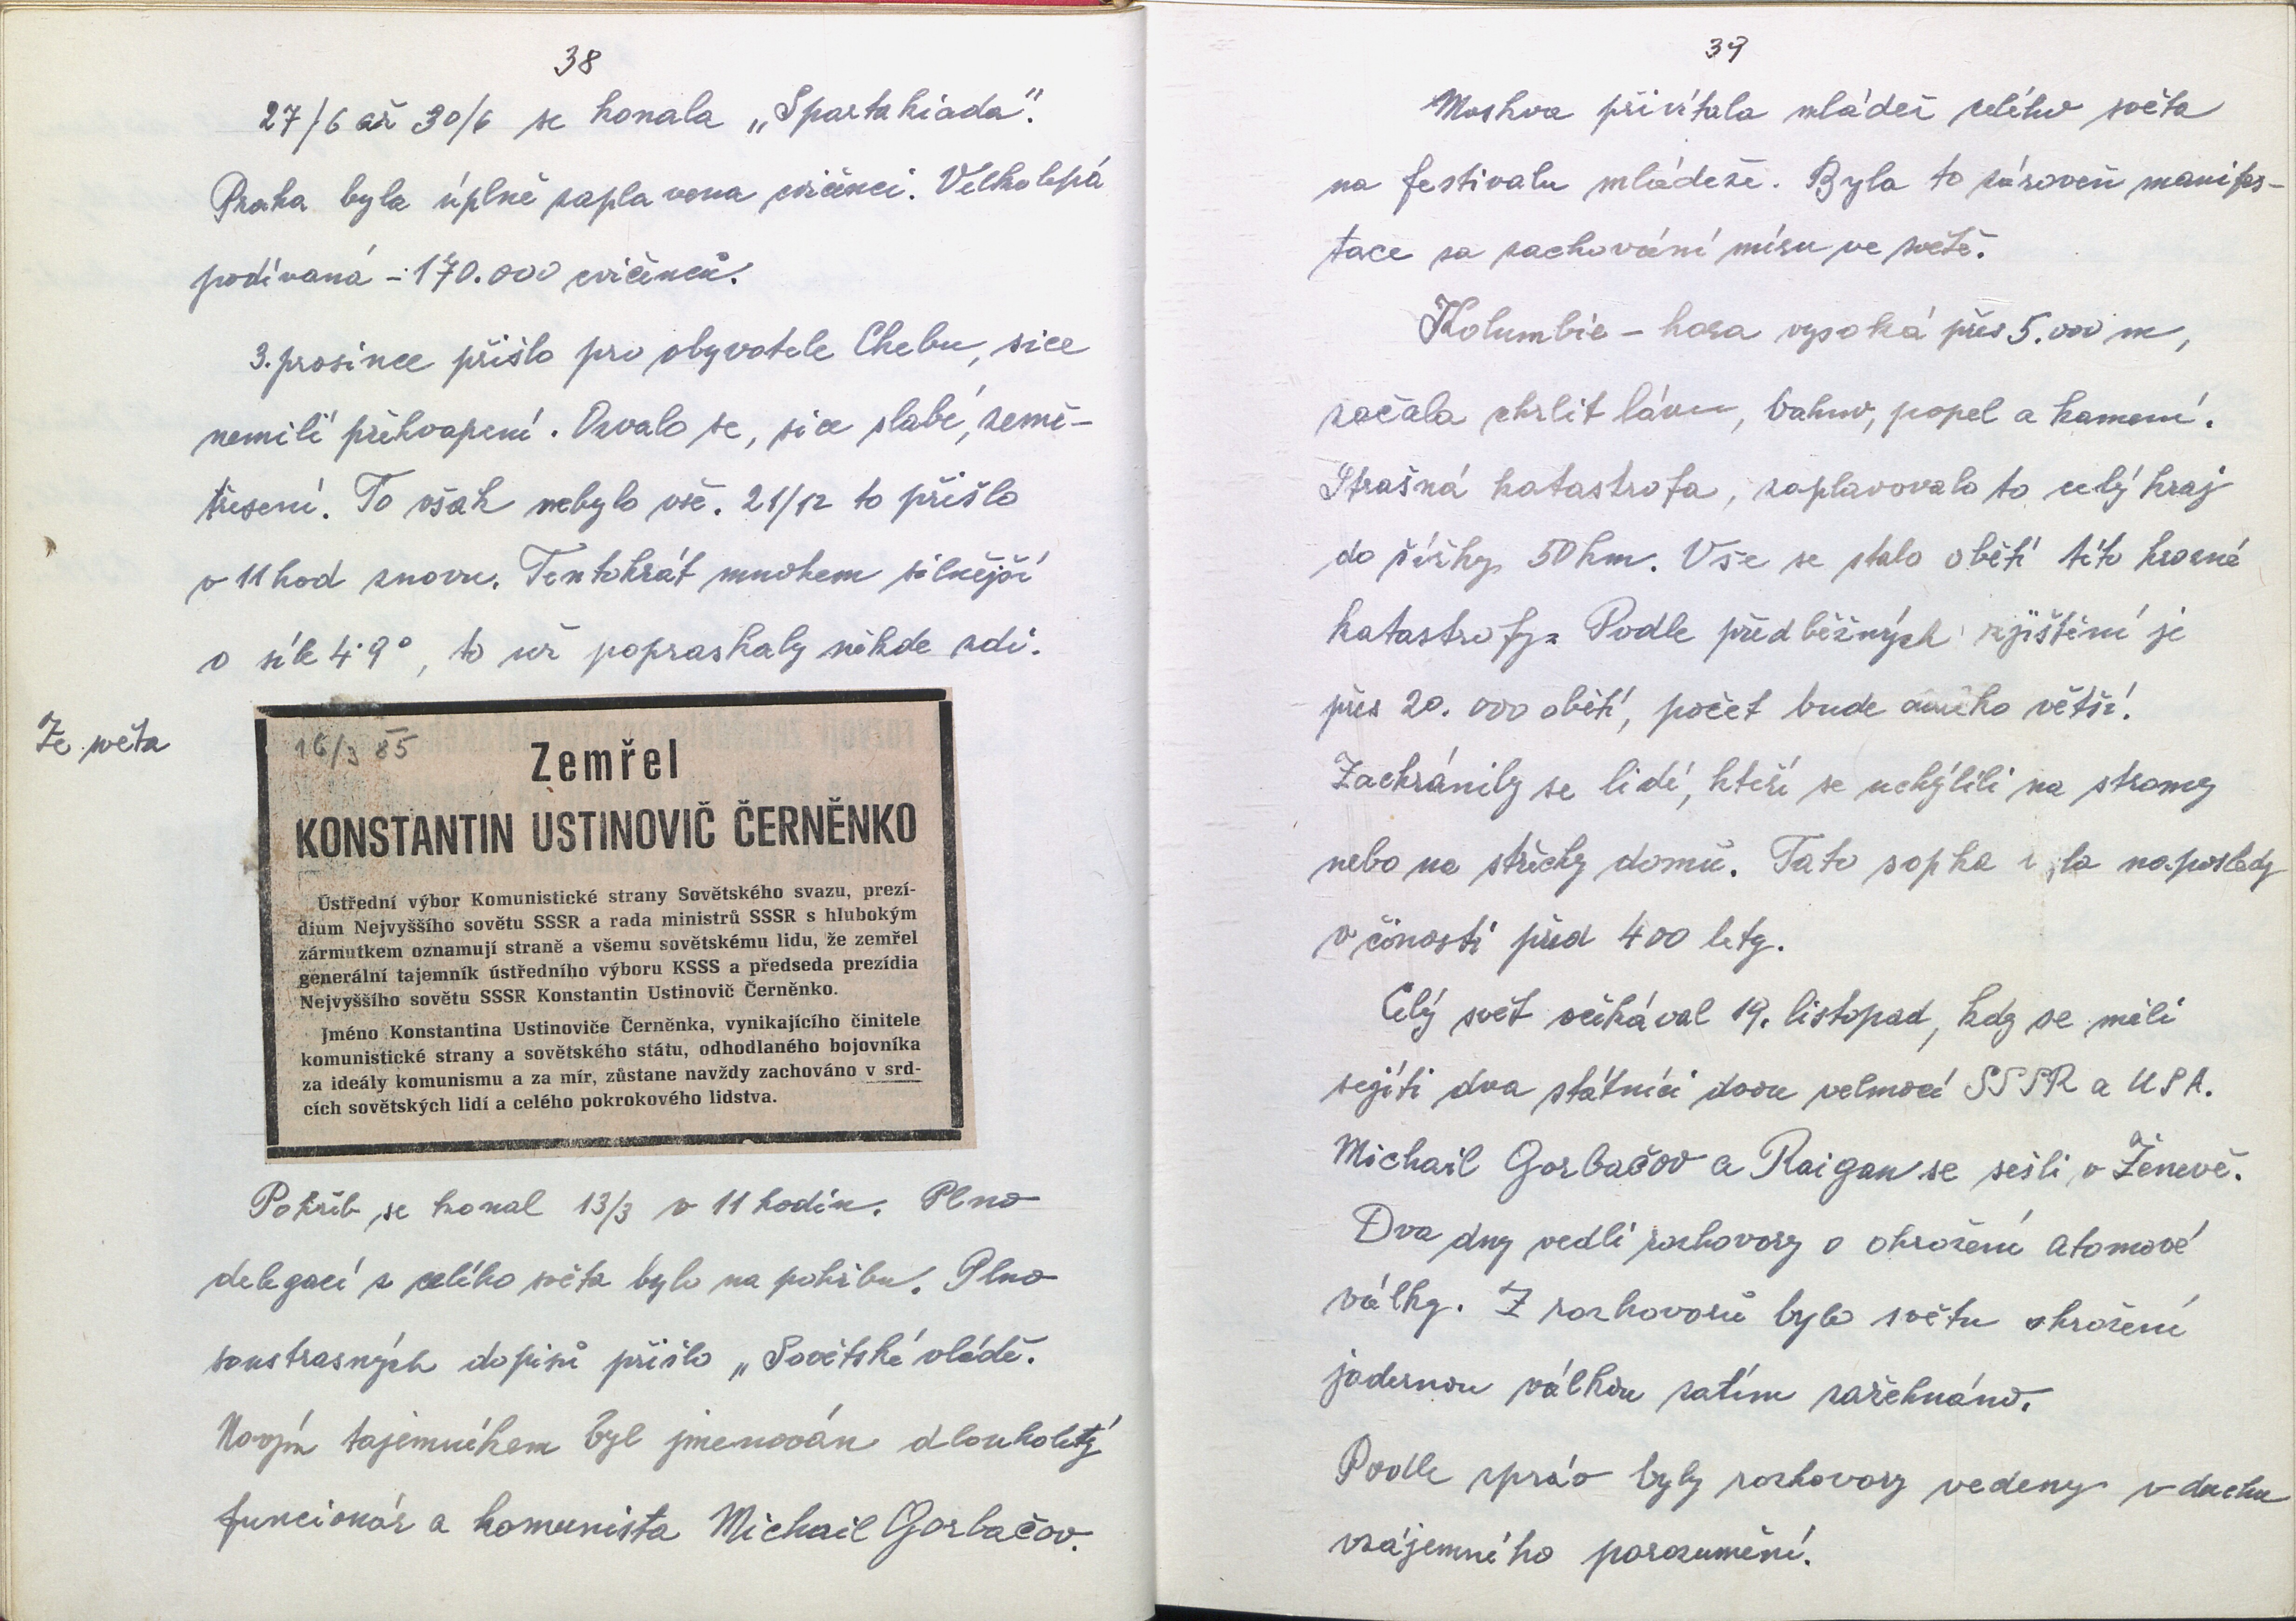 38
27/6 až 30/6 se konala „Spartakiada".
Praha byla úplně zaplavena cvičenci. Velkolepá
podívaná – 170.000 cvičenců.
3. prosince přišlo pro obyvatele Chebu, sice
nemilí překvapení. Ozvalo se, sice slabé, země-
třesení. To však nebylo vše. 21/12 to přišlo
v 11 hod znovu. Tentokrát mnohem silnější
o síle 4.9°, to už popraskaly někde zdi.
Ze světa
16/3 85
Zemřel
KONSTANTIN USTINOVIČ ČERNĚNKO
Ústřední výbor Komunistické strany Sovětského svazu, prezí-
dium Nejvyššího sovětu SSSR a rada ministrů SSSR s hlubokým
zármutkem oznamují straně a všemu sovětskému lidu, že zemřel
generální tajemník ústředního výboru KSSS a předseda prezídia
Nejvyššího sovětu SSSR Konstantin Ustinovič Černěnko.
Jméno Konstantina Ustinoviče Černěnka, vynikajícího činitele
komunistické strany a sovětského státu, odhodlaného bojovníka
za ideály komunismu a za mír, zůstane navždy zachováno v srd-
cích sovětských lidí a celého pokrokového lidstva.
Pohřeb se konal 13/3 v 11 hodin. Plno
delegací z celého světa bylo na pohřbu. Plno
soustrasných dopisů přišlo „Sovětské vládě.
Novým tajemníkem byl jmenován dlouholetý
funcionár a komunista Michail Gorbačov.
39
Moskva přivítala mládež celého světa
na festivalu mládeže. Byla to zároveň manifes-
tace za zachování míru ve světě.
Kolumbie – hora vysoká přes 5.000 m,
začala chrlit lávu, bahno, popel a kamení.
Strašná katastrofa, zaplavovalo to celý kraj
do šířky 50 km. Vše se stalo obětí této hrozné
katastrofy. Podle předběžných zjištění je
přes 20.000 obětí, počet bude větší.
Zachránily se lidé, kteří se uchýlili na stromy
nebo na střechy domů. Tato sopka naposledy
v činosti před 400 lety.
Celý svět očekával 19. listopad, kdy se měli
sejíti dva státníci dvou velmocí SSSR a USA.
Michail Gorbačov a Raigan se sešli v Ženevě.
Dva dny vedli rozhovory o ohrožení atomové
války. Z rozhovorů bylo světu ohrožení
jadernou válkou zatím zažehnáno.
Podle zpráv byly rozhovory vedeny v duchu
vzájemného porozumění.